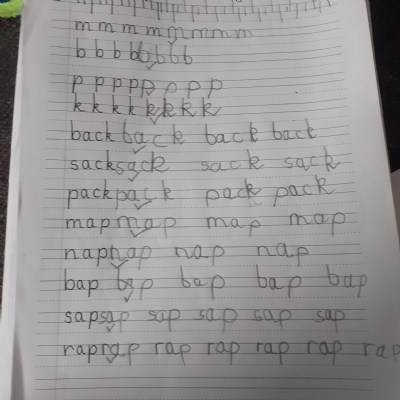 m m m m m m m m m
b b b b b b b b
p p p p p p p p
k k k k k k k k
back back back back
sack sack sack sack
pack pack pack pack
map map map map
nap nap nap nap
bap bap bap bap bap
sap sap sap sap sap sap
rap rap rap rap rap rap rap